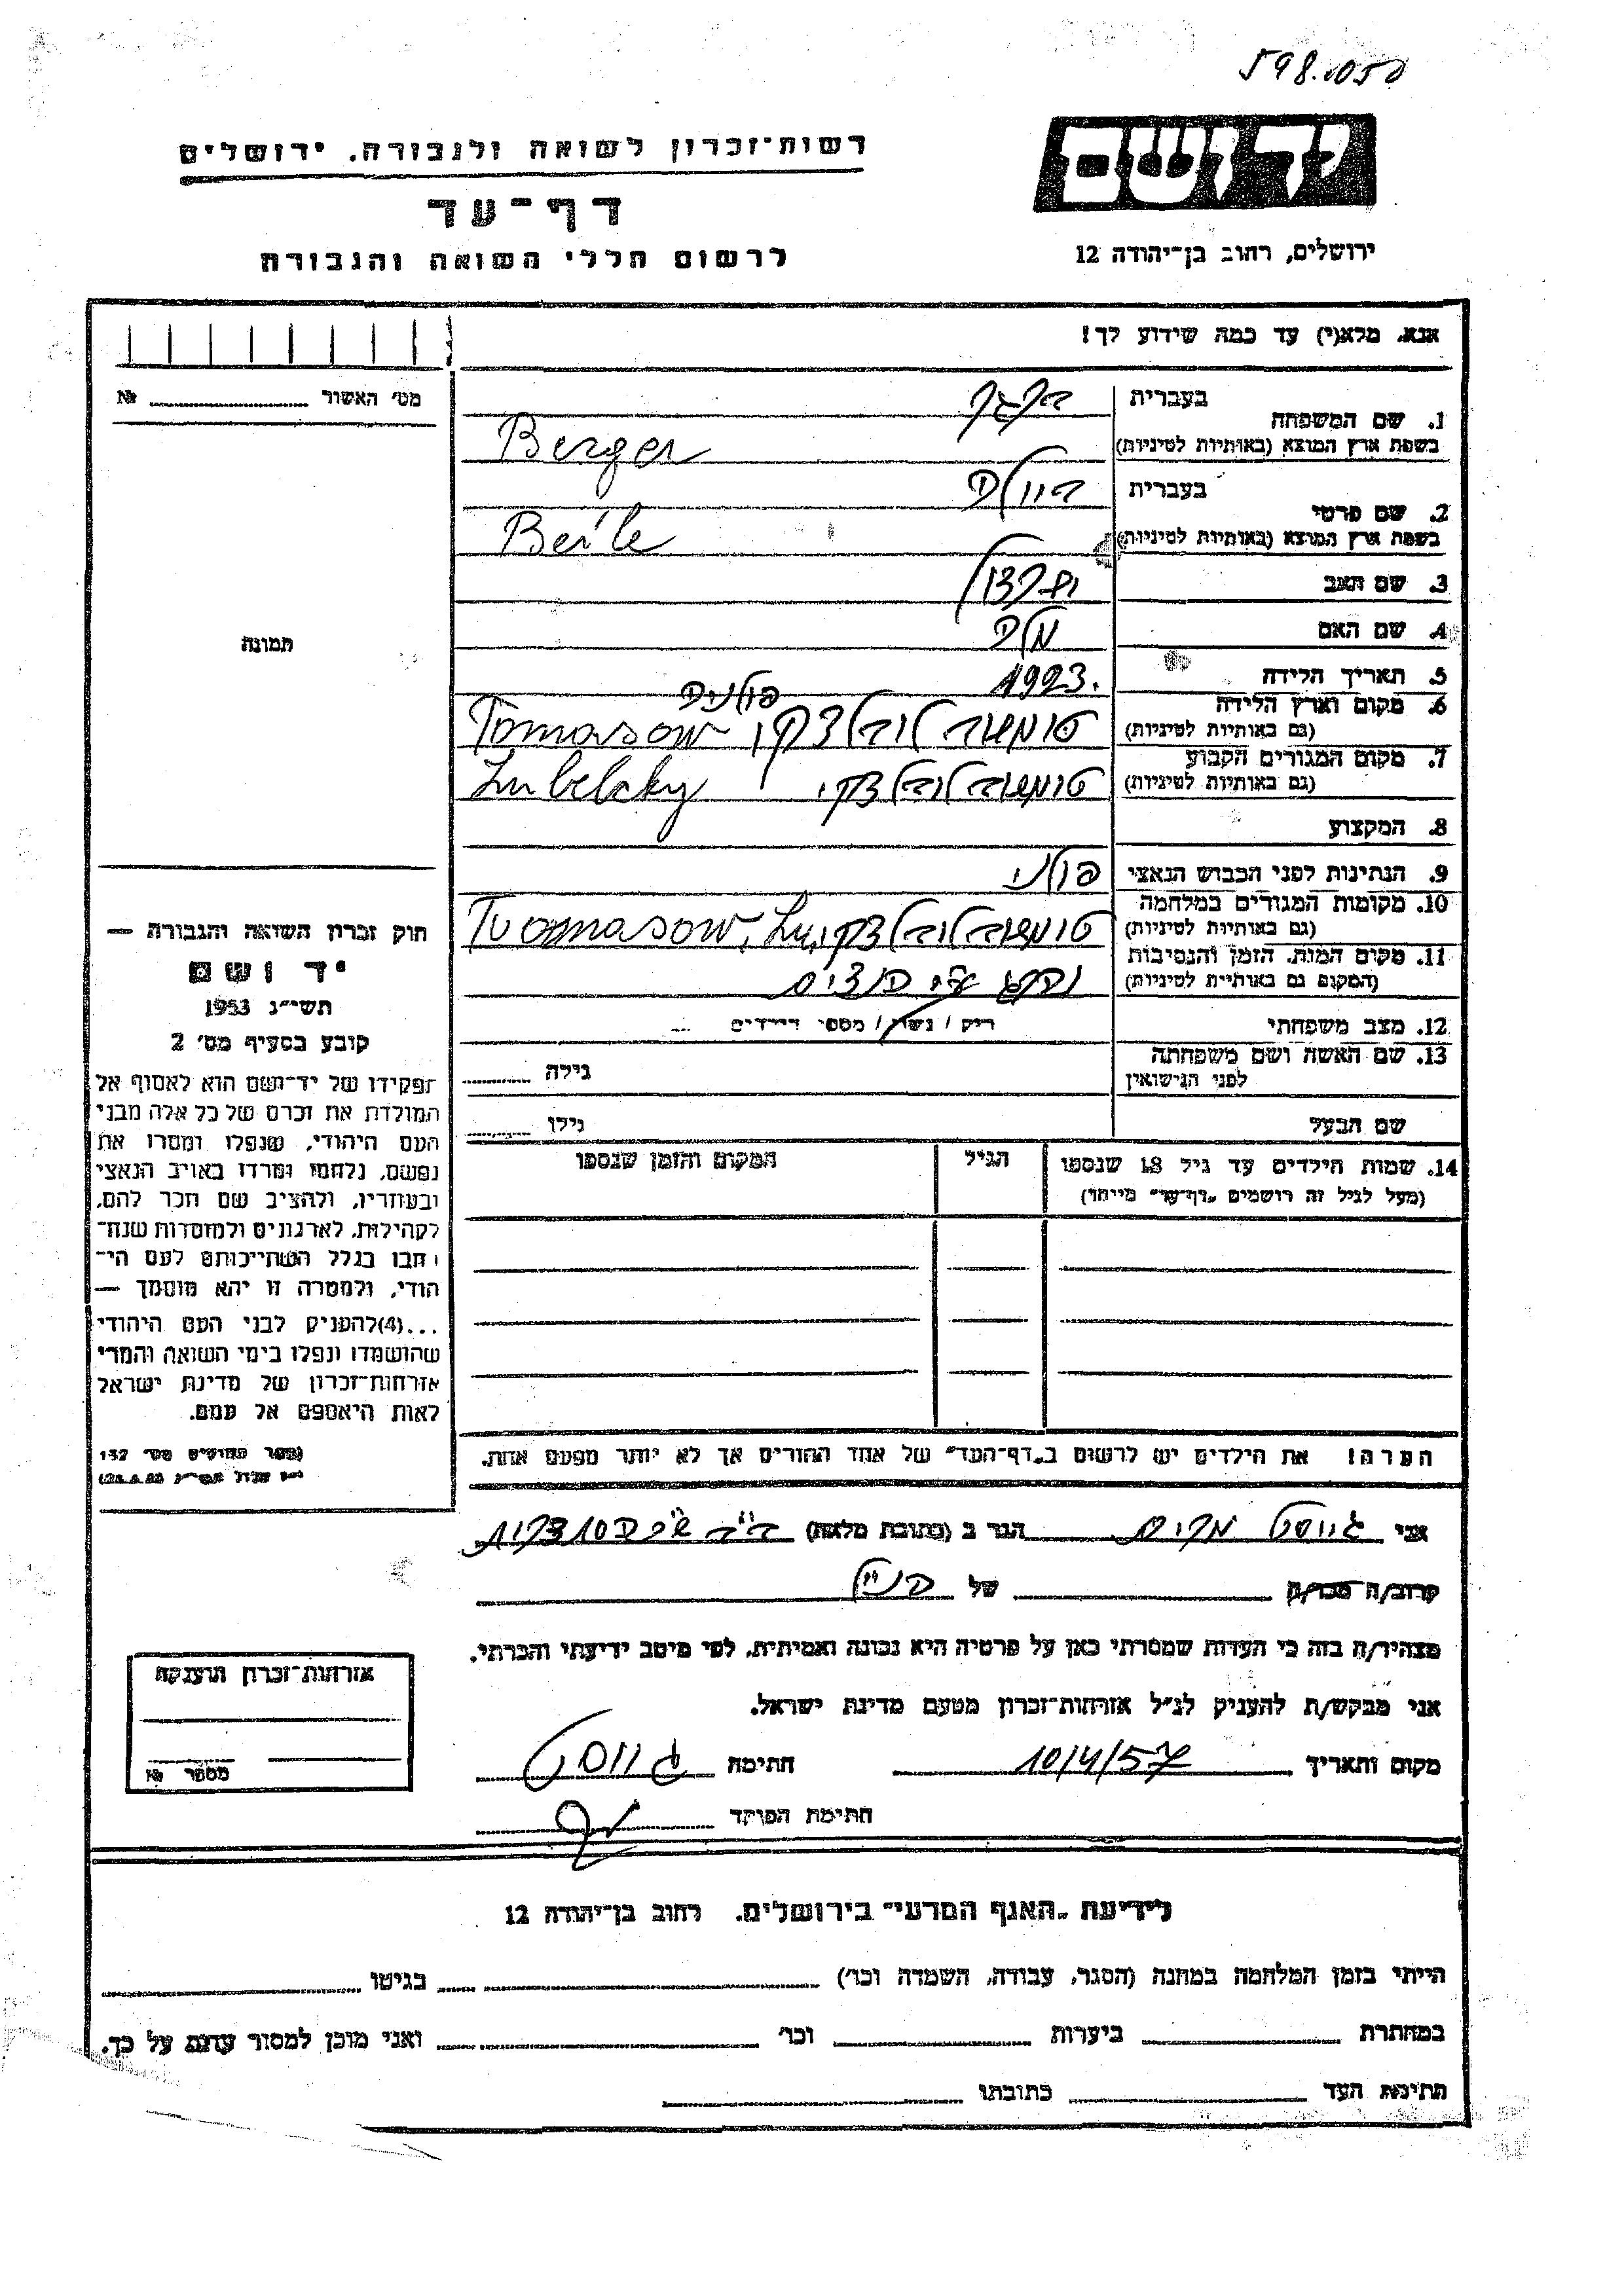 598.1050
יד ושם
רשות-זכרון לשואה ולגבורה. ירושלים
דף-עד
לרשום חללי השואה והגבורה
ירושלים, רחוב בן-יהודה 12
אנא, מלא(י) עד כמה שידוע לך!
מס׳ האשור № 
1. שם המשפחה
בעברית ברגר
בשפת ארץ המוצא (באותיות לטיניות) Berger
2. שם פרטי
בעברית
בשפת ארץ המוצא (באותיות לטיניות) Beile
3. שם האב
4. שם האם
5. תאריך הלידה 1923.
6. מקום וארץ הלידה פולניה
(גם באותיות לטיניות) טומשוב לובלצקי, Tomasow
7. מקום המגורים הקבוע
(גם באותיות לטיניות) טומשוב לובלצקי, Lubelsky
8. המקצוע
9. הנתינות לפני הכבוש הנאצי פולני
10. מקומות המגורים במלחמה
(גם באותיות לטיניות) טומשוב לובלצקי, Tvomasow, Lu
11. מקום המות, הזמן והנסיבות
(המקום גם באותיות לטיניות)
12. מצב משפחתי רוק / נשוי / מספר הילדים
13. שם האשה ושם משפחתה
לפני הנישואין גילה
שם הבעל גילו
14. שמות הילדים עד גיל 18 שנספו
(מעל לגיל זה רושמים „דף-עד״ מיוחד)
הגיל
המקום והזמן שנספו
הערה! את הילדים יש לרשום ב„דף-העד״ של אחד ההורים אך לא יותר מפעם אחת.
תמונה
חוק זכרון השואה והגבורה —
יד ושם
תשי״ג 1953
קובע בסעיף מס׳ 2
תפקידו של יד-ושם הוא לאסוף אל
המולדת את זכרם של כל אלה מבני
העם היהודי, שנפלו ומסרו את
נפשם, נלחמו ומרדו באויב הנאצי
ובעוזריו, ולהציב שם וזכר להם,
לקהילות, לארגונים ולמוסדות שנח-
רבו בגלל השתייכותם לעם הי-
הודי, ולמטרה זו יהא מוסמך —
...(4)להעניק לבני העם היהודי
שהושמדו ונפלו בימי השואה והמרי
אזרחות-זכרון של מדינת ישראל
לאות היאספם אל עמם.
(ספר החוקים מס׳ 132
אני הגר ב (כתובת מלאה)
קרוב/ה מכר/ה של
מצהיר/ה בזה כי העדות שמסרתי כאן על פרטיה היא נכונה ואמיתית, לפי מיטב ידיעתי והכרתי.
אני מבקש/ת להעניק לנ״ל אזרחות-זכרון מטעם מדינת ישראל.
מקום ותאריך 10/4/57 חתימה
חתימת הפוקד
אזרחות-זכרון הוענקה
מספר №
לידיעת „האגף המדעי״ בירושלים. רחוב בן-יהודה 12
הייתי בזמן המלחמה במחנה (הסגר, עבודה, השמדה וכו׳) בגיטו
במחתרת ביערות וכו׳ ואני מוכן למסור עדות על כך.
חתימת העד כתובתו